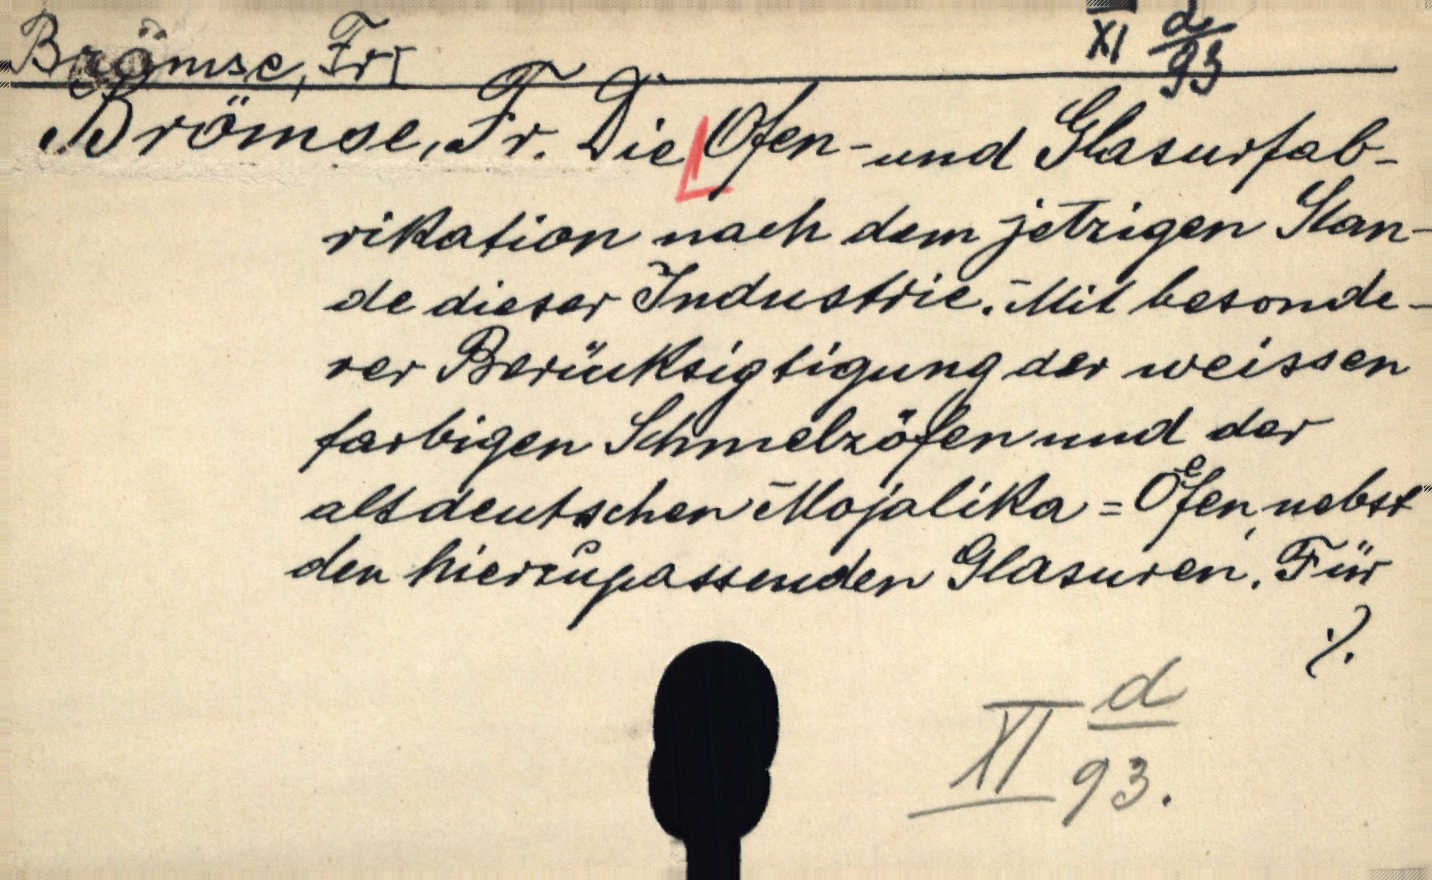 Brömse, Fr. XI d/93
Brömse, Fr. Die Ofen- und Glasurfab-
rikation nach dem jetzigen Stan-
de dieser Industrie. Mit besonde-
rer Berüuksigtigung der weissen
farbigen Schmelzöfen und der
altdeutschen Mojalika = Oefen, nebst
den hierzupassenden Glasuren. Für
./.
XI d/93.